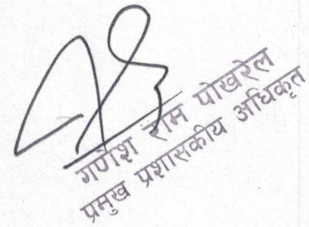 गणेश राम पोखरेल
प्रमुख प्रशासकीय अधिकृत